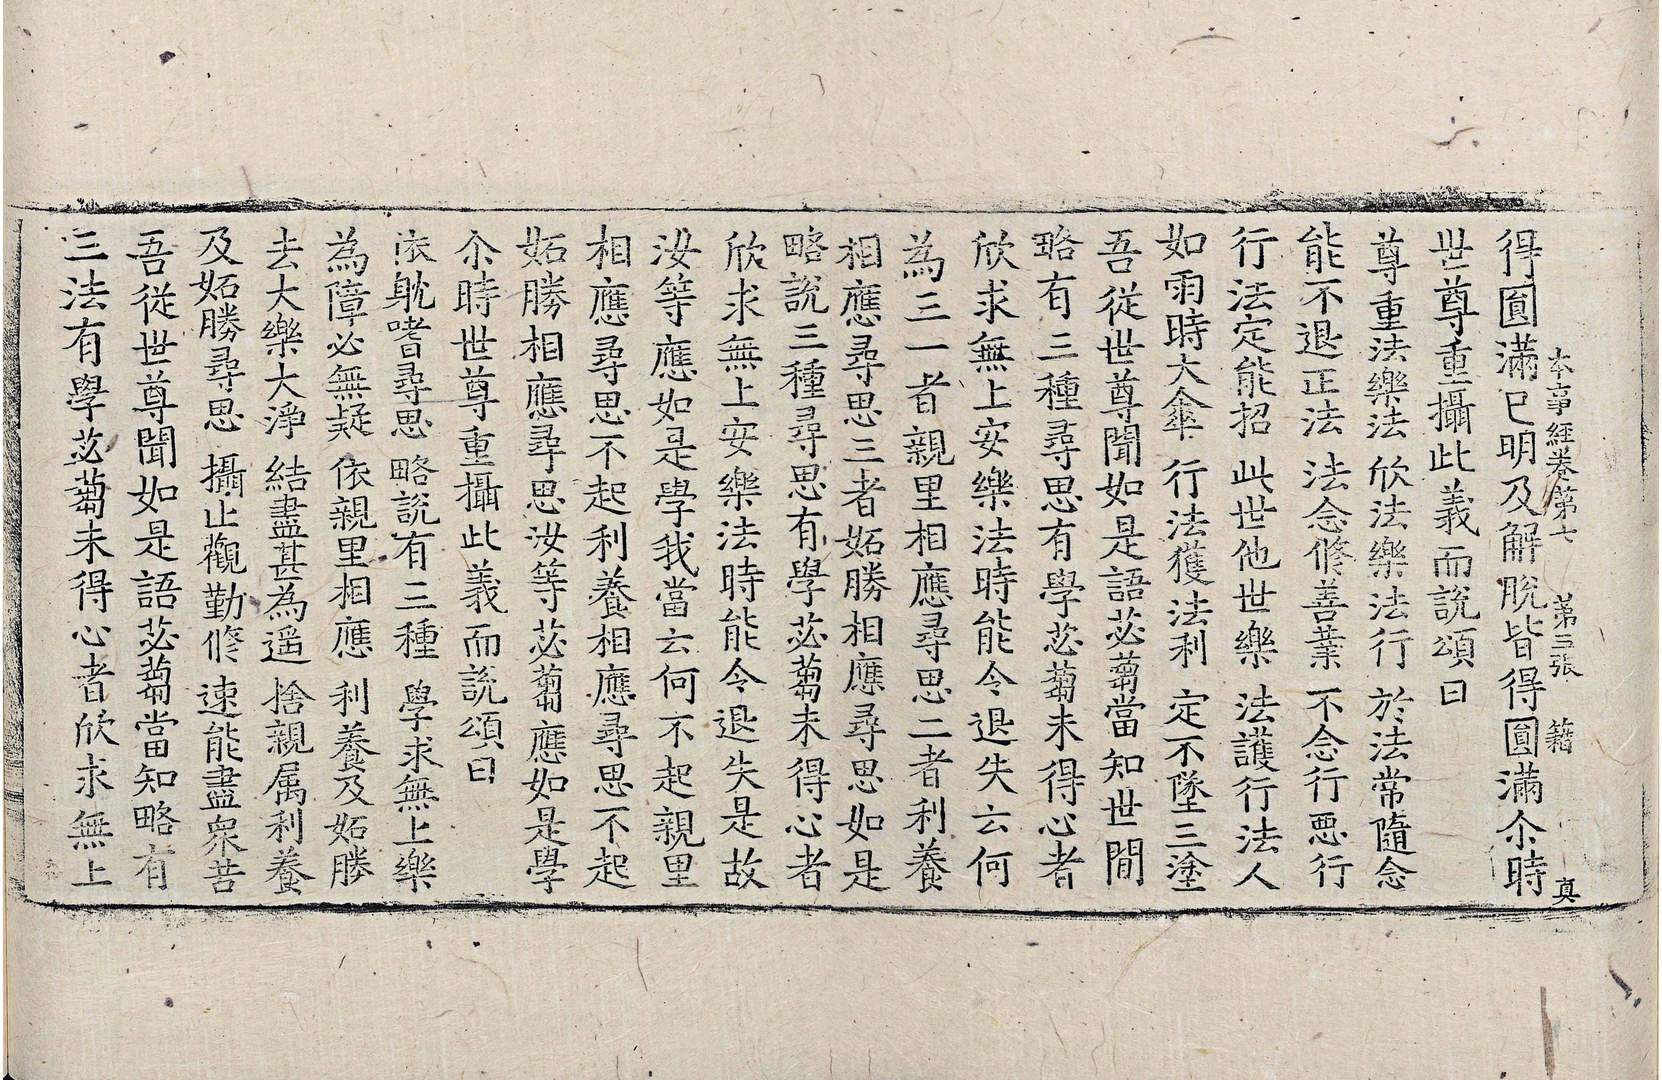 本事經卷第七 第三張 籍 真
得圓滿已明及解脫皆得圓滿尒時
世尊重攝此義而說頌曰
尊重法樂法 欣法樂法行 於法常隨念
能不退正法 法念修善業 不念行惡行
行法定能招 此世他世樂 法護行法人
如雨時大傘 行法獲法利 定不墜三塗
吾從世尊聞如是語苾蒭當知世間
略有三種尋思有學苾蒭未得心者
欣求無上安樂法時能令退失云何
為三一者親里相應尋思二者利養
相應尋思三者妬勝相應尋思如是
略說三種尋思有學苾蒭未得心者
欣求無上安樂法時能令退失是故
汝等應如是學我當云何不起親里
相應尋思不起利養相應尋思不起
妬勝相應尋思汝等苾蒭應如是學
尒時世尊重攝此義而說頌曰
依躭嗜尋思 略說有三種 學求無上樂
為障必無疑 依親里相應 利養及妬勝
去大樂大淨 結盡甚為遥 捨親属利養
及妬勝尋思 攝止觀勤修 速能盡衆苦
吾從世尊聞如是語苾蒭當知略有
三法有學苾蒭未得心者欣求無上